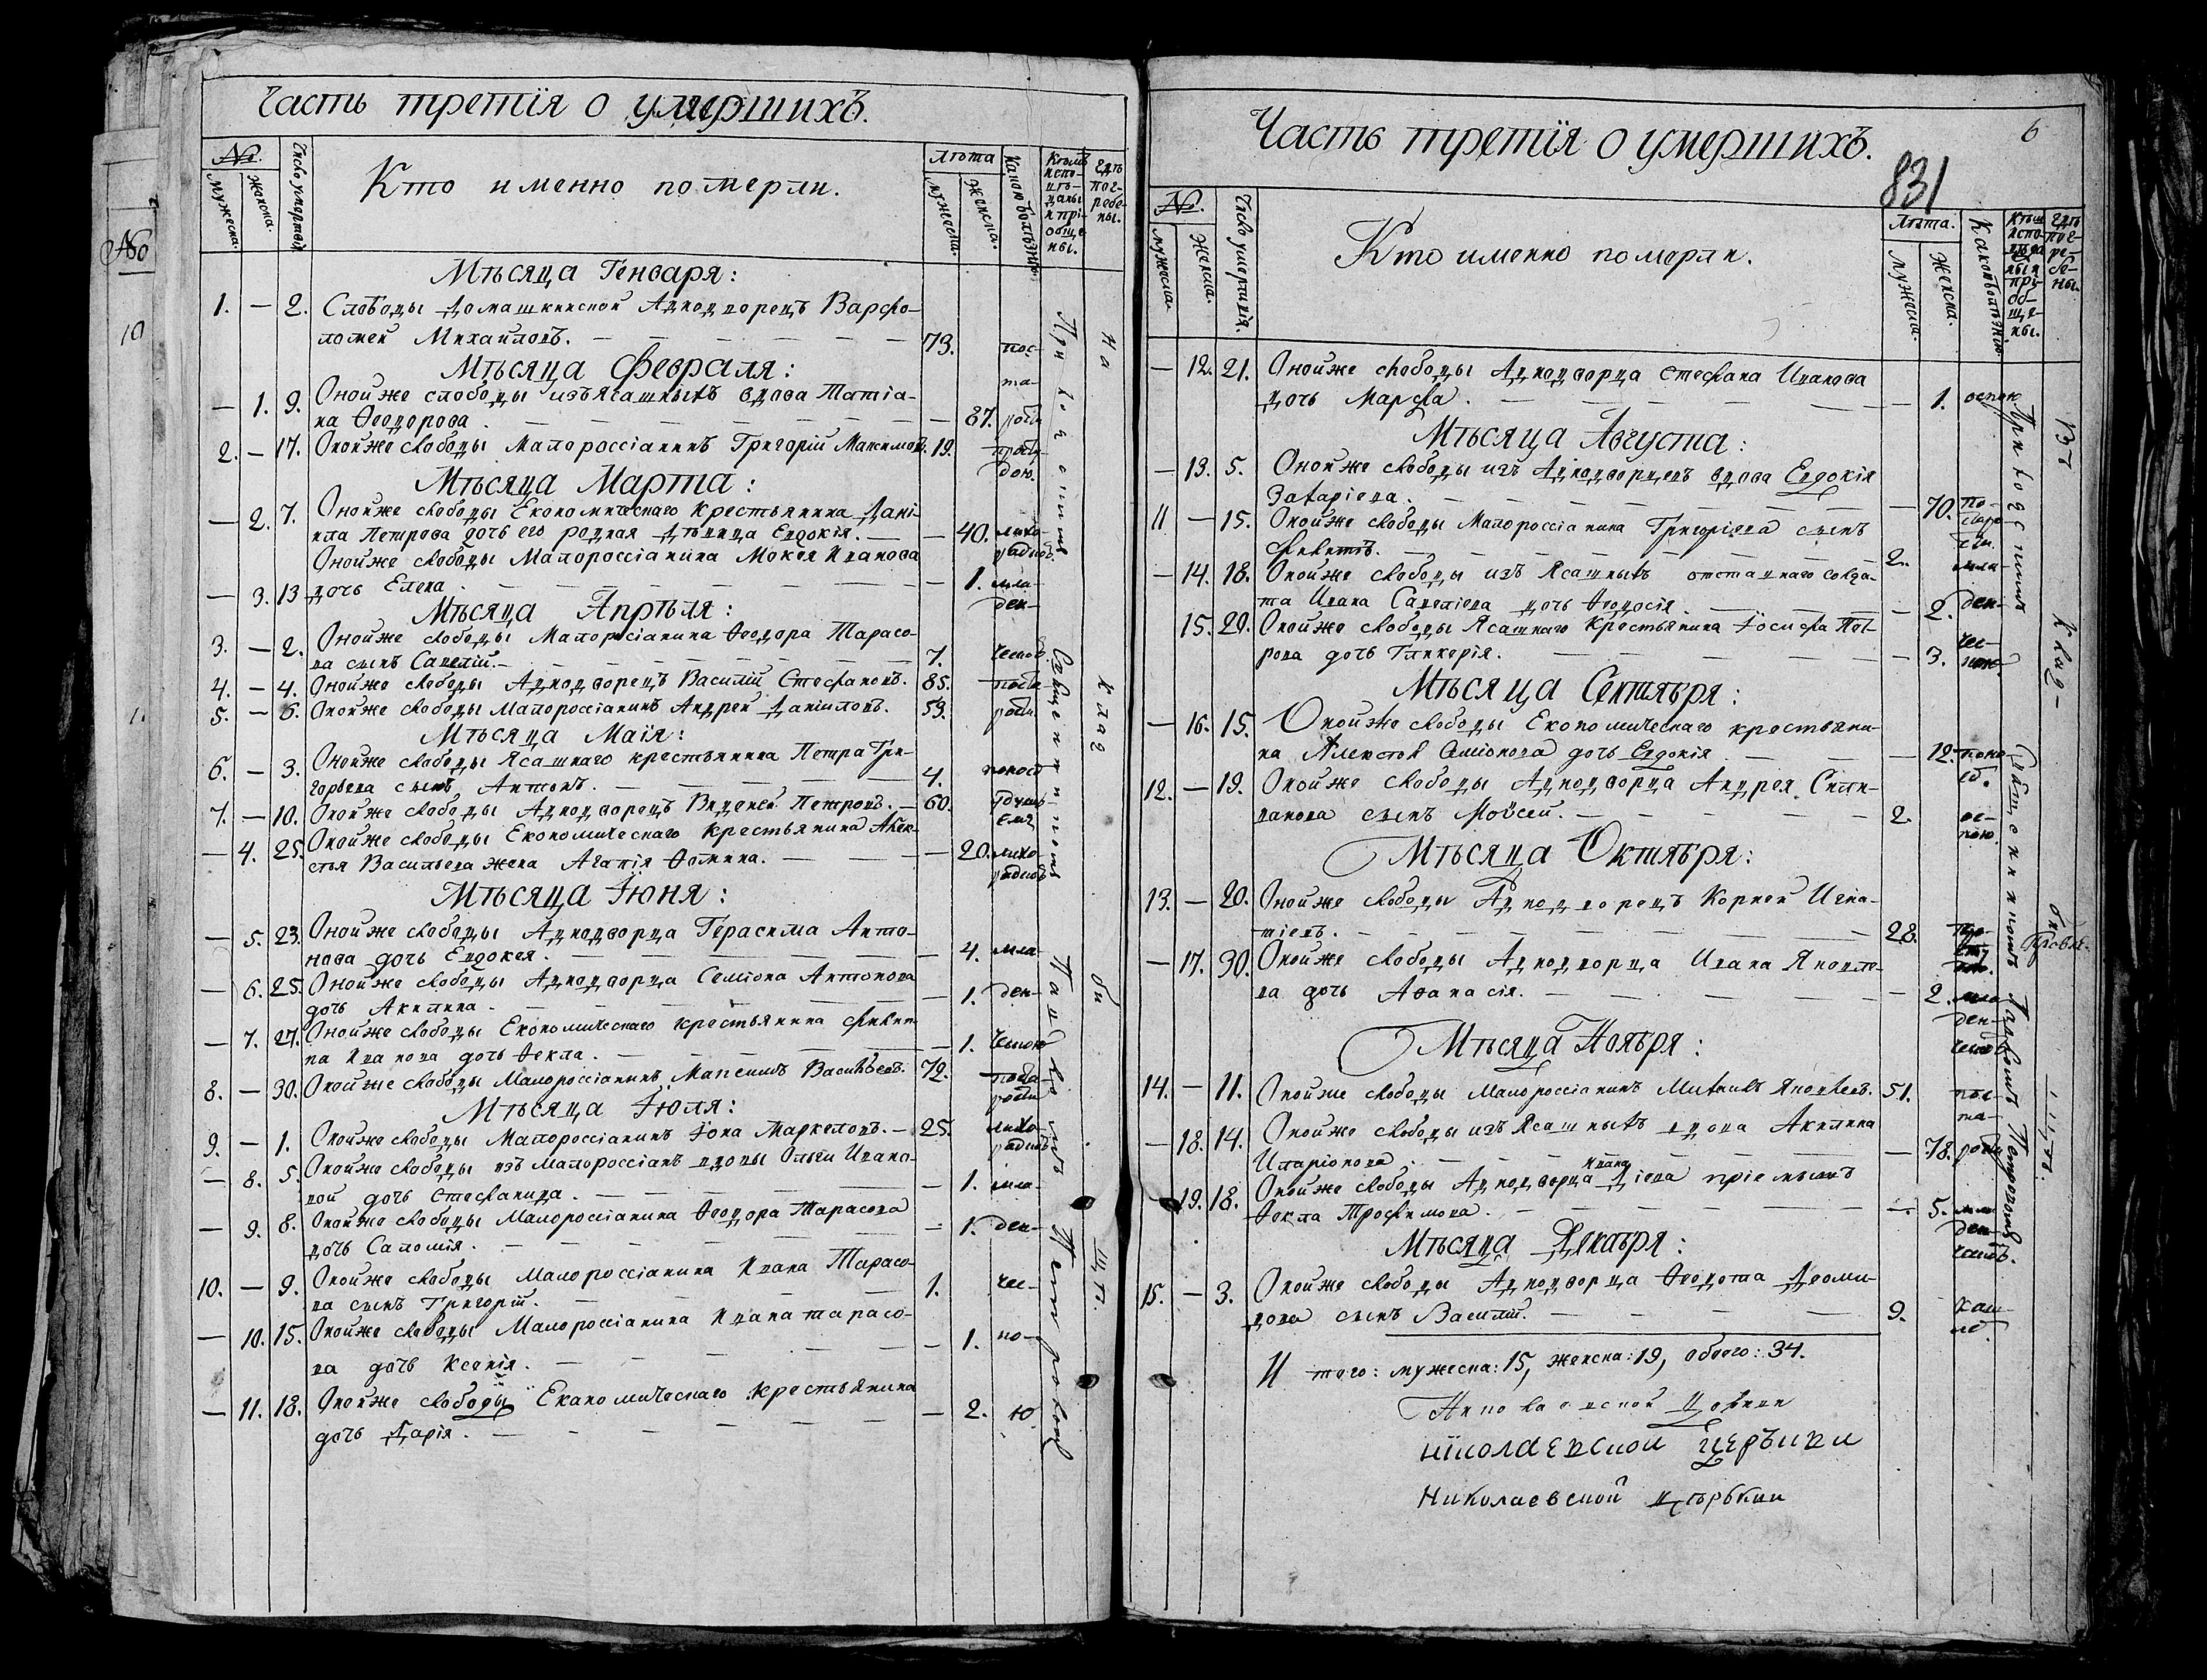 Часть третїя о умершихъ.
№.
мужеска.
женска.
Число умертвїя
Кто именно померли.
лѣта
мужеска.
женска.
Какою болѣзнїю
Кѣмъ испо-
вѣ-
даны
и прі-
обще
ны.
Гдѣ
пог-
ребе-
ны.
Мѣсяца Генваря:
1. — 2. Слободы Домашкинской Аднодворецъ Варфо-
ломей Михайловъ. — 73. 
Мѣсяца Февраля:
— 1. 9. Оной же слободы изъ Ясашныхъ вдова Татіа-
на Ѳеодорова. — 87.
2. — 17. Оной же слободы Малороссіанинъ Григорій Максимов. 19.
Мѣсяца Марта:
— 2. 7. Оной же слободы Економическаго крестьянина Дані-
ила Петрова дочь его родная дѣвица Евдокія. — 40. лихо-
радкою
Оной же слободы Малороссіанина Мокея Иванова
— 3. 13 дочь Елена — 1. мла-
ден-
Мѣсяца Апрѣля:
3. — 2. Оной же слободы Малоросіанина Ѳеодора Тарасо-
ва сынъ Савелій. — 7.
4. — 4. Оной же слободы Аднодворецъ Василій Стефановъ. 85.
5. — 6. Оной же слободы Малороссіанинъ Андрей Даніиловъ. 59.
Мѣсяца Маія:
6. — 3. Оной же слободы Ясашнаго крестьянина Петра Гри-
горьева сынъ Антонъ. — 4.
7. — 10. Оной же слободы Аднодворецъ Петровъ. — 60.
— 4. 25. Оной же слободы Економическаго крестьянина Алек-
сѣя Васильева жена Агапія Ѳомина. — 20. лихо
радкою
Мѣсяца Іюня:
— 5. 23. Оной же слободы Аднодворца Герасима Анто-
нова дочь Евдокея. — 4. мла-
— 6. 25. Оной же слободы Аднодворца Семіона Антонова
дочь Акилина. — 1. ден-
— 7. 27. Оной же слободы Економическаго крестьянина Филип-
па Иванова дочь Ѳекла. — 1.
8. — 30. Оной же слободы Малороссіанинъ Максимъ Васильевъ. 72.
Мѣсяца Іюля:
9. — 1. Оной же слободы Малороссіанинъ Іона Маркеловъ. — 25. лихо
радкою
— 8. 5. Оной же слободы изъ Малороссіанъ вдовы Ольги Ивано-
вой дочь Стефанида. — 1. мла-
— 9. 8. Оной же слободы Малороссіанина Ѳеодора Тарасова
дочь Саломія. — 1. ден-
10. — 9. Оной же слободы Малороссіанина Ивана Тарасо-
ва сынъ Григорій. 1. чес-
— 10. 15. Оной же слободы Малороссіанина Ивана Тарасо-
ва дочь Ксенія. — 1. но-
— 11. 18. Оной же слободы Економическаго крестьянина
дочь Дарія. — 2. ю
При ходскимъ Священникомъ Павломъ Петровомъ
На клад би щѣ.
Часть третїя о умершихъ.
6
831
№.
мужеска.
женска.
Число умертвїя.
Кто именно померли.
Лѣта.
мужеска.
женска.
Какою болѣзнїю.
— 12. 21. Оной же слободы Аднодворца Стефана Иванова
дочь Марфа. — 1. оспою.
Мѣсяца Августа:
— 13. 5. Оной же слободы изъ Аднодворцевъ вдова Евдокія
Захаріева. — 70.
11 — 15. Оной же слободы Малороссіанина Григоріева сынъ
Филипъ. — 2. мла-
— 14. 18. Оной же слободы изъ Ясашныхъ отставнаго солда-
та Ивана Савеліева дочь Ѳеодосія. — 2. ден-
15. 29. Оной же слободы Ясашнаго крестьянина Іосифа Пет-
рова дочь Гликерія. — 3. чес-
ною.
Мѣсяца Сентября:
— 16. 15. Оной же слободы Економическаго крестьяни-
на Алексѣя Симіонова дочь Евдокія — 12.
12. — 19. Оной же слободы Аднодворца Андрея
сынъ Моѵсей. — 2. ос-
пою.
Мѣсяца Октября:
13. — 20. Оной же слободы Аднодворецъ Корней Игна-
тіевъ. — 28.
— 17. 30. Оной же слободы Аднодворца Ивана Яковле-
ва дочь Аѳанасія. — 2. мла
ден-
Мѣсяца Ноября:
14. — 11. Оной же слободы Малороссіанинъ Михаилъ Яковлевъ. 51.
— 18. 14. Оной же слободы изъ Ясашныхъ вдова Акилина
Иларіонова. — 78.
— 19. 18. Оной же слободы Аднодворца Ивана пріемышъ
Ѳекла Трофимова. — 5. мла
ден-
Мѣсяца Декабря:
15. — 3. Оной же слободы Аднодворца Ѳедота Деоми-
дова сынъ Василій. — 9. каш
ле.
Итого: мужеска: 15, женска: 19, обоего: 34.
Николаевской церкви
Николаевской церькви
При ходскимъ Священникомъ Павломъ Петровомъ